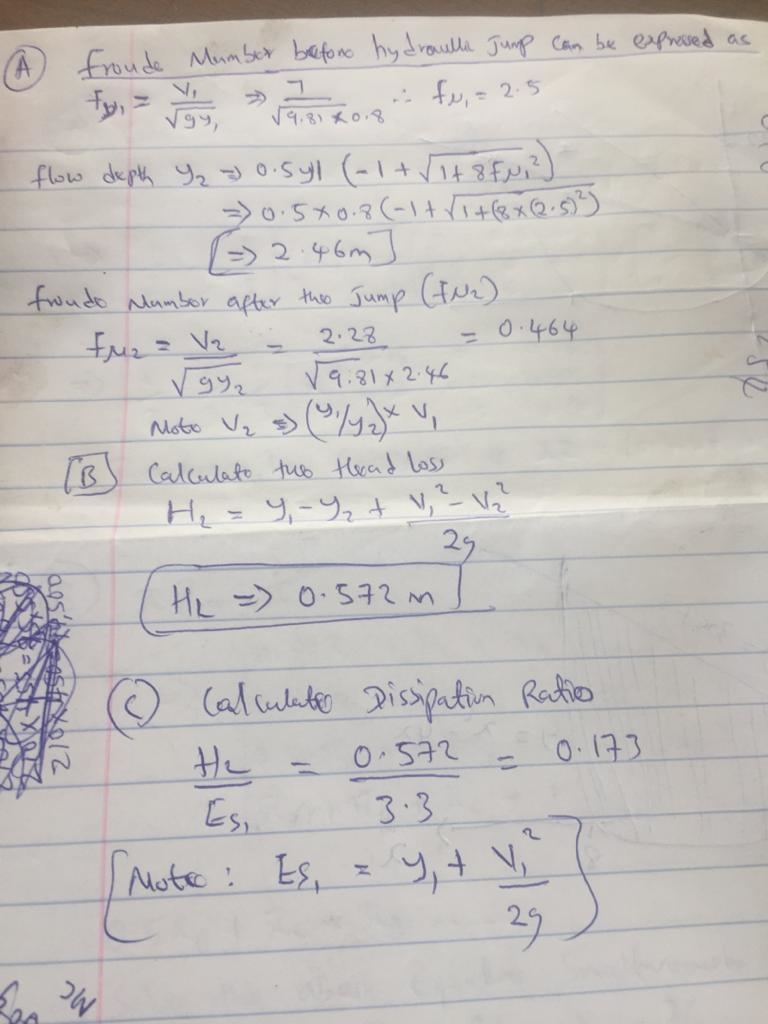 (A) Froude Number before hydraulic Jump can be expressed as
FN1 = V1/√gy1 => 7/√9.81 x 0.8 ∴ FN1 = 2.5
flow depth y2 => 0.5y1 (-1 + √1 + 8FN1²)
=> 0.5 x 0.8 (-1 + √1 + (8 x (2.5)²)
[=> 2.46m]
froude Number after the Jump (FN2)
FN2 = V2/√gy2 = 2.28/√9.81 x 2.46 = 0.464
Note V2 => (y1/y2) x V1
[B] Calculate the Head Loss
HL = y1 - y2 + V1² - V2²/2g
HL => 0.572 m
(C) Calculate Dissipation Ratio
HL/Es1 = 0.572/3.3 = 0.173
[Note: Es1 = y1 + V1²/2g]